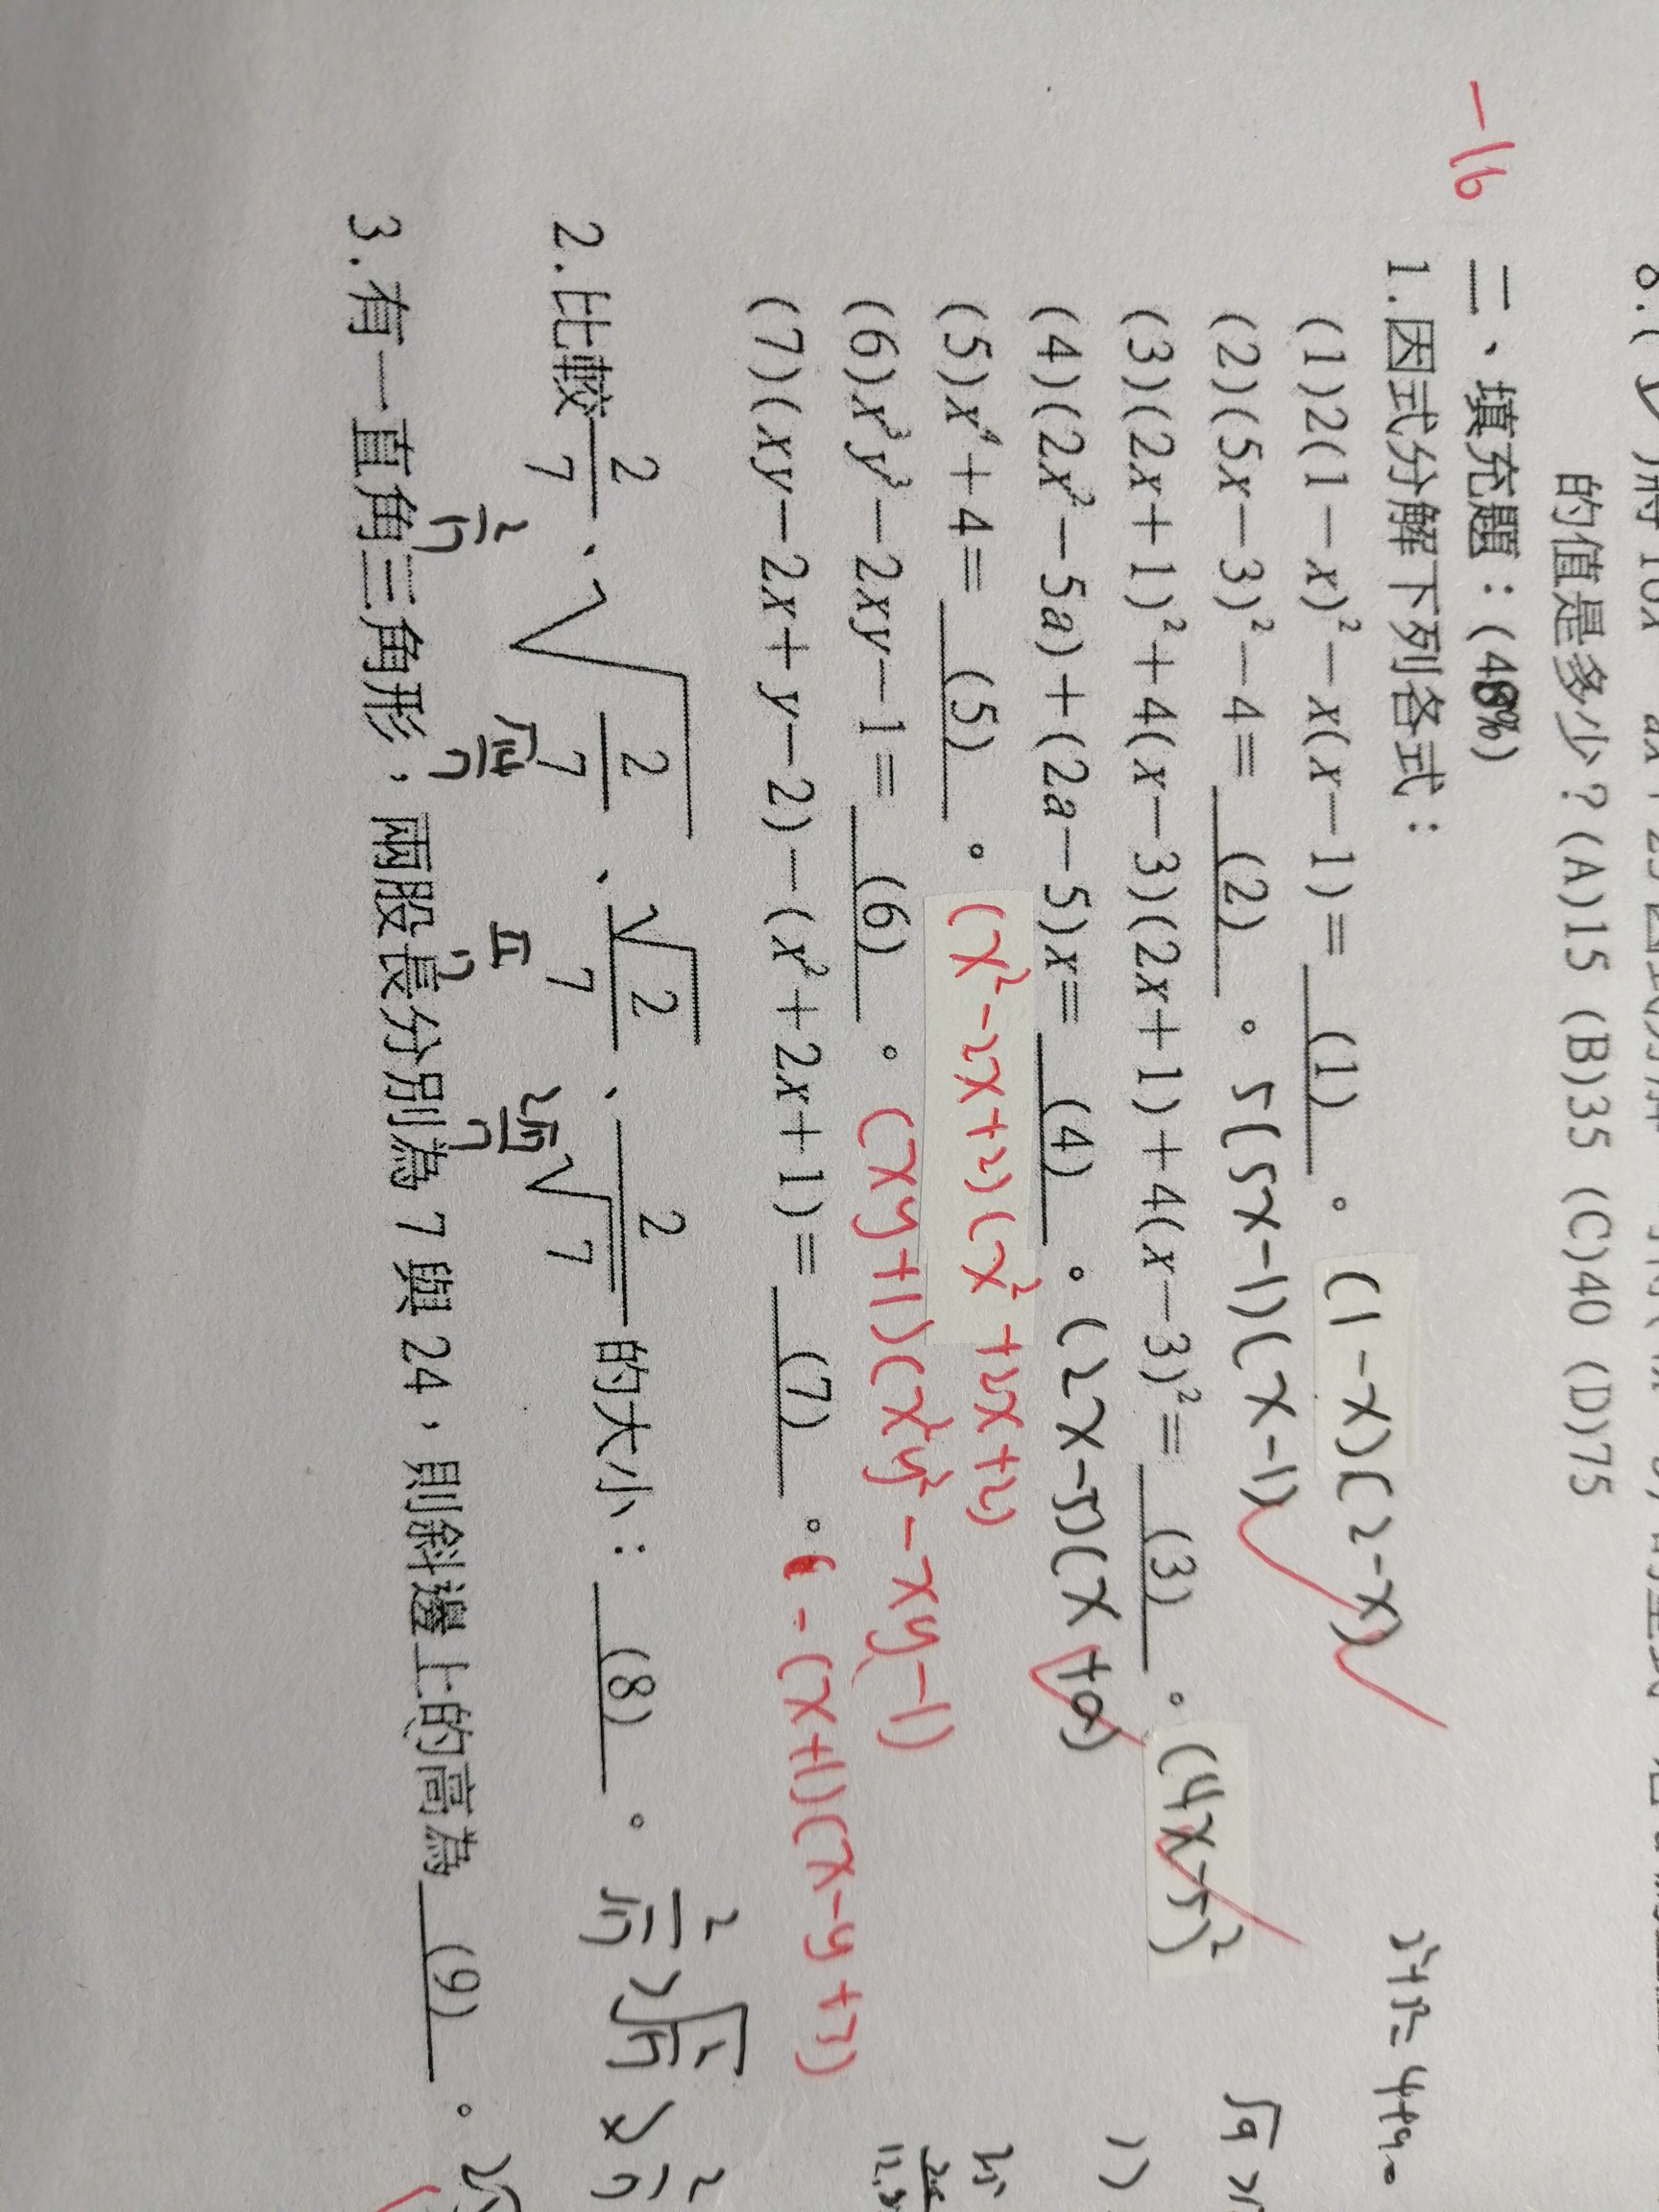 的值是多少？(A)15 (B)35 (C)40 (D)75
-16
二、填充題：(48%)
1.因式分解下列各式：
(1)2(1－x)²－x(x－1)＝ (1) 。(1-x)(2-x)
(2)(5x－3)²－4＝ (2) 。5(5x-1)(x-1)
(3)(2x＋1)²＋4(x－3)(2x＋1)＋4(x－3)²＝ (3) 。(4x-5)²
(4)(2x²－5a)＋(2a－5)x＝ (4) 。(2x-5)(x+a)
(5)x⁴＋4＝ (5) 。(x²-2x+2)(x²+2x+2)
(6)x³y³－2xy－1＝ (6) 。(xy+1)(x²y²-xy-1)
(7)(xy－2x＋y－2)－(x²＋2x＋1)＝ (7) 。-(x+1)(x-y+3)
2.比較 2/7、√(2/7)、√2/7、2/√7 的大小： (8) 。2/√7 > √(2/7) > 2/7
2/7 √14/7 √2/7 2√7/7
3.有一直角三角形，兩股長分別為 7 與 24，則斜邊上的高為 (9) 。